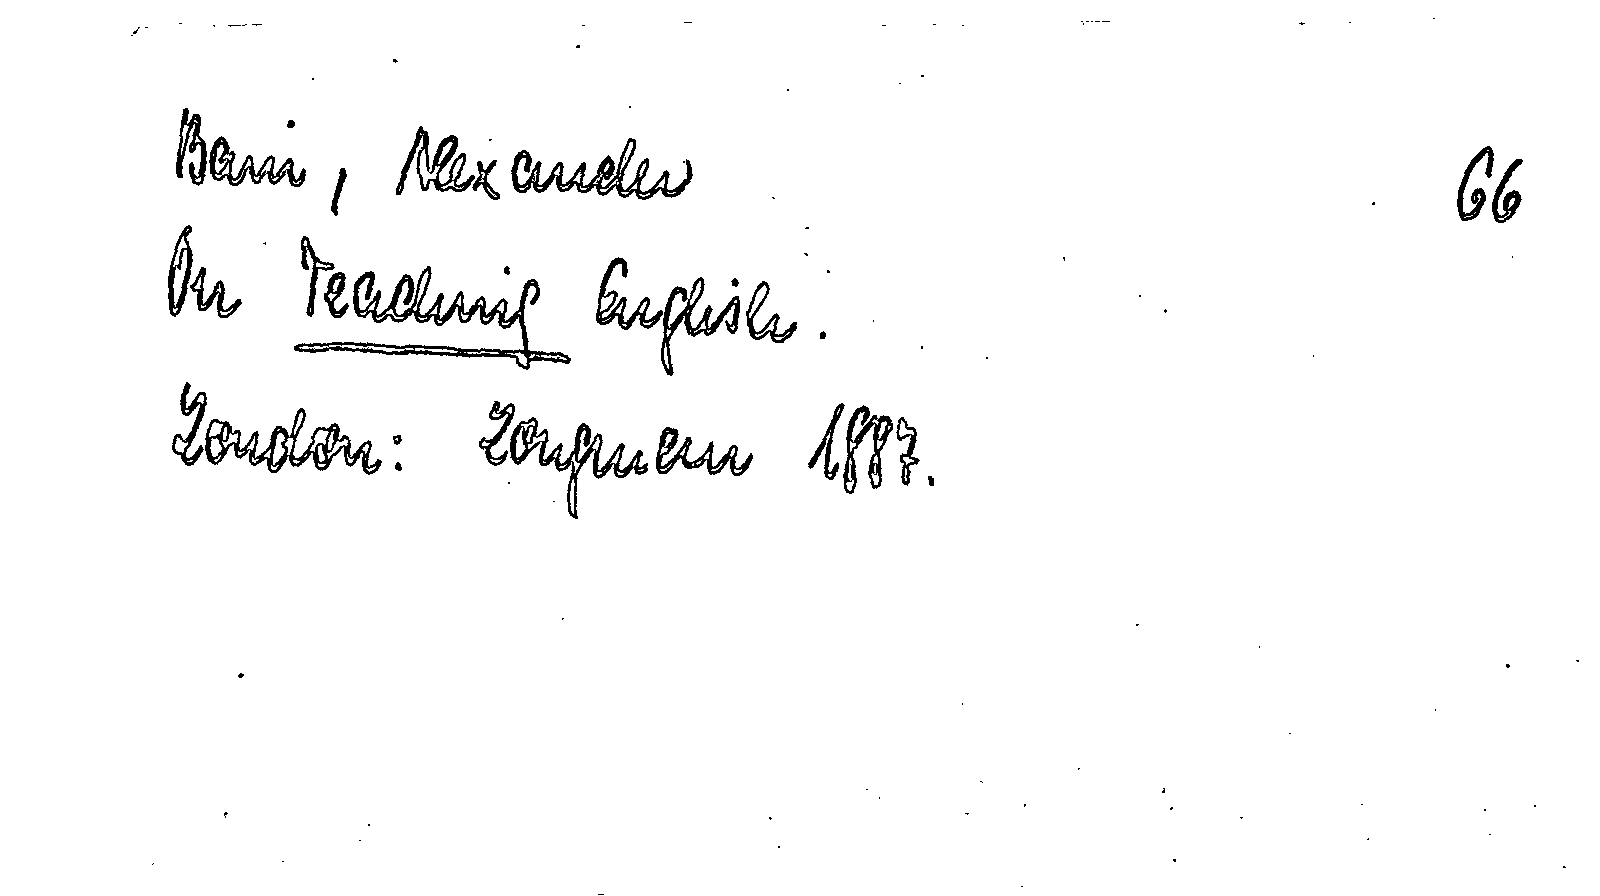 Bain, Alexander
G6
On Teaching English.
London: Longman 1887.